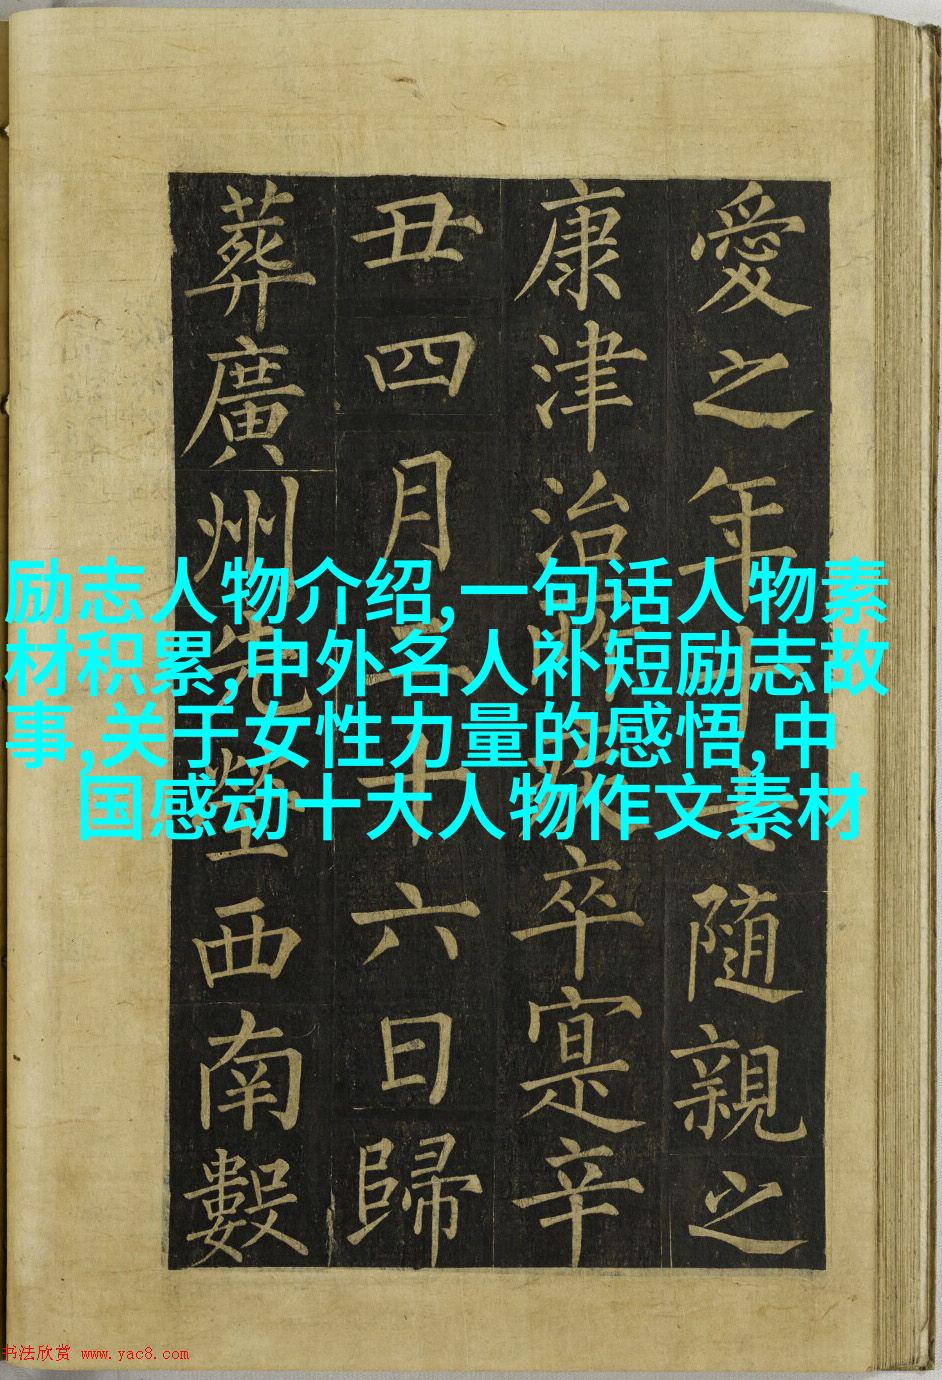 愛之年隨親之
康津治卒寔辛
丑四月二十六日歸
葬廣州先塋西南數
励志人物介绍,一句话人物素
材积累,中外名人补短励志故
事,关于女性力量的感悟,中
国感动十大人物作文素材
书法欣赏 www.yac8.com